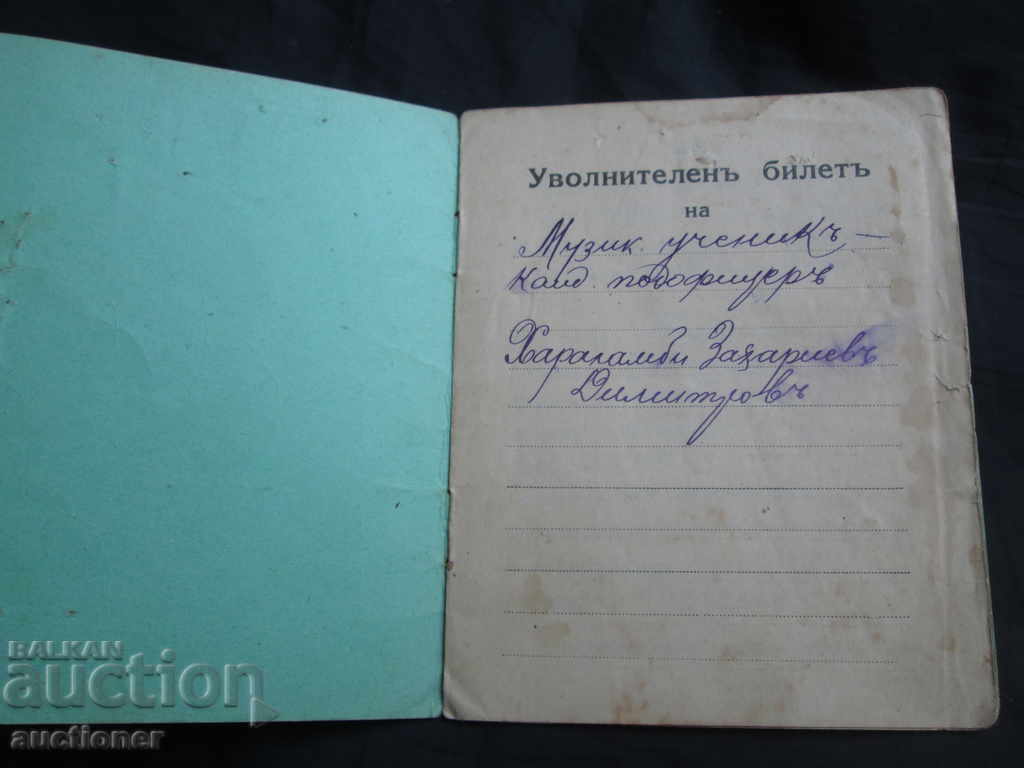 Уволнителенъ билетъ
на
Музик. ученикъ –
Канд. подофицеръ
Хараламби Захариевъ
Димитровъ
BALKAN
auction
auctioner